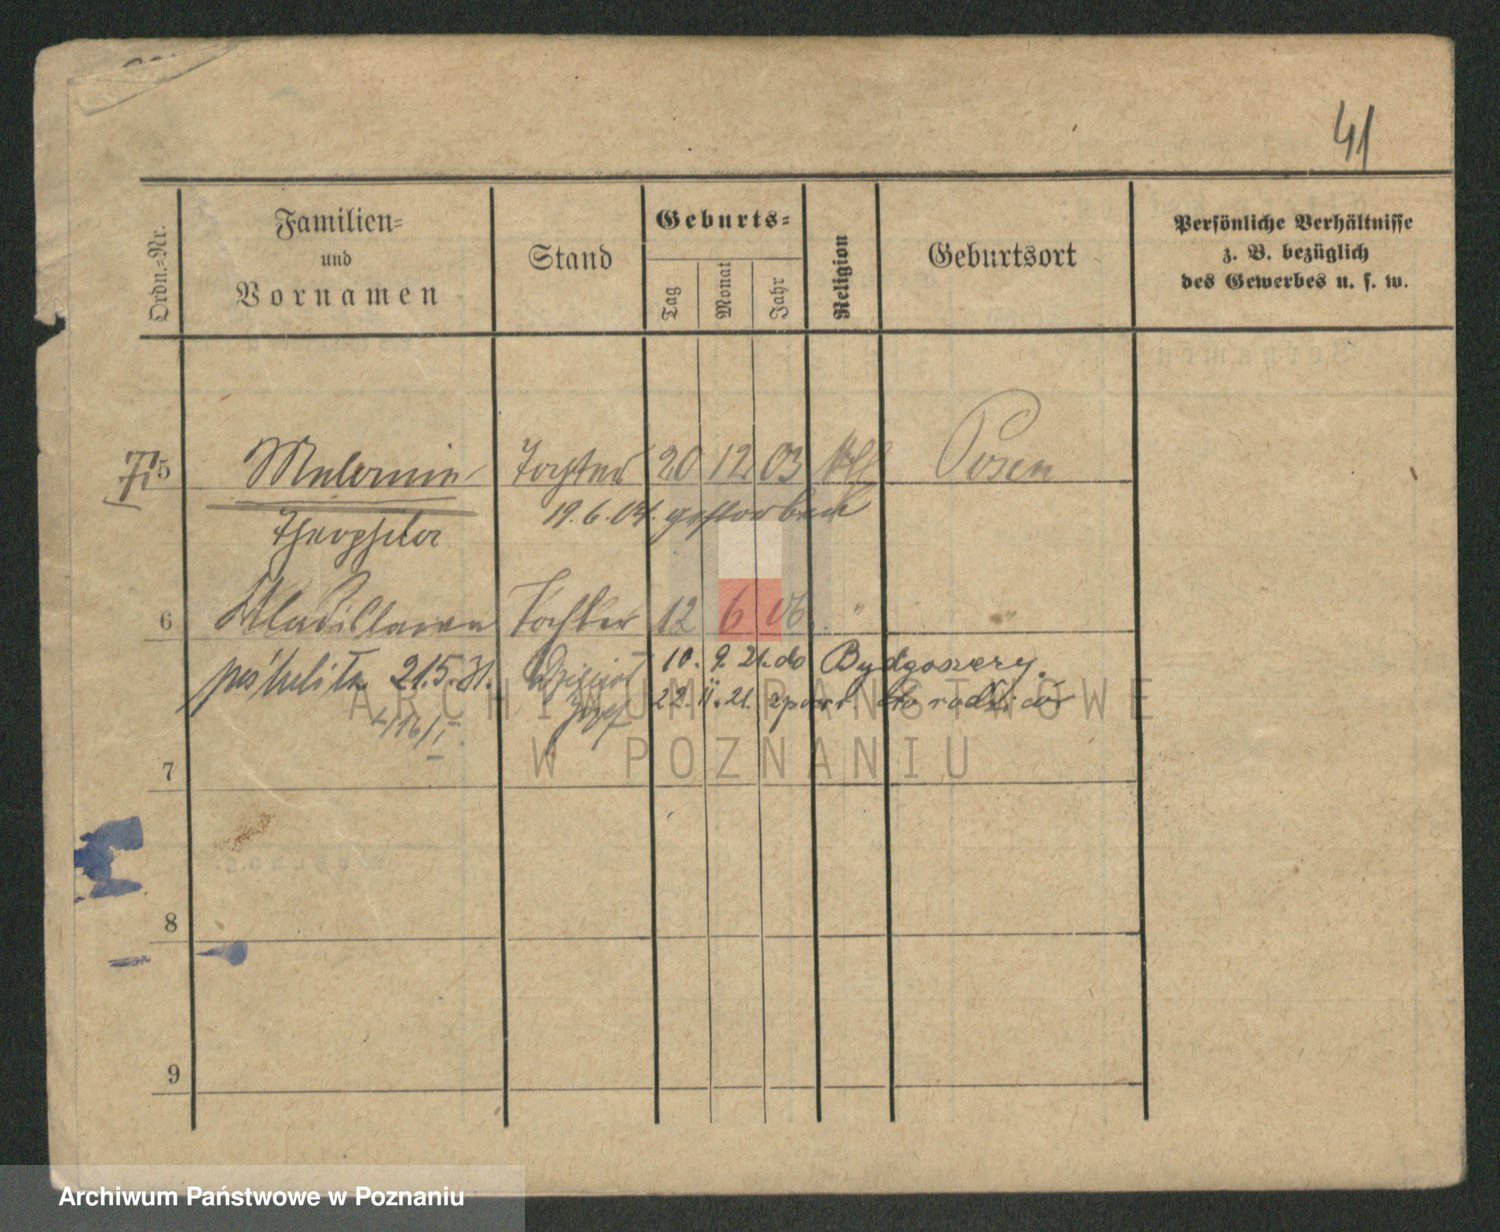 41
Ordn.-Nr.
Familien-
und
Vornamen
Stand
Geburts-
Tag
Monat
Jahr
Religion
Geburtsort
Persönliche Verhältnisse
z. B. bezüglich
des Gewerbes u. s. w.
5 Tochter 20 12 03 Posen
19.6.04. gestorben
6 Tochter 12 6 06 " "
poślubiła 21.5.31. 10. 9. 21. do Bydgoszczy.
Józef 22. 11. 21. do rodziców
7
8
9
ARCHIWUM PAŃSTWOWE
W POZNANIU
Archiwum Państwowe w Poznaniu